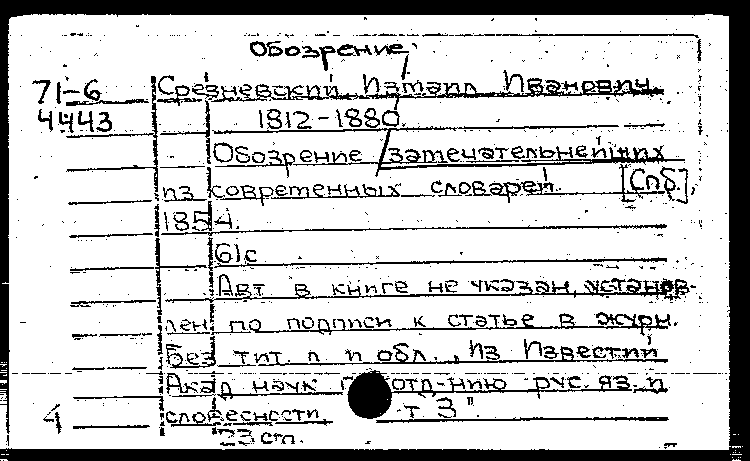 Обозрение
71-6 Срезневский Измаил Иванович.
4443 1812-1880.
Обозрение замечательнейших
из современных словарей. [Спб.],
1854.
61с
Авт в книге не указан, установ-
лен по подписи к статье в журн.
Без тит. л и обл., Из Известий
Акад наук по отд-нию рус. яз. и
4 словесности, т 3".
23 cm.